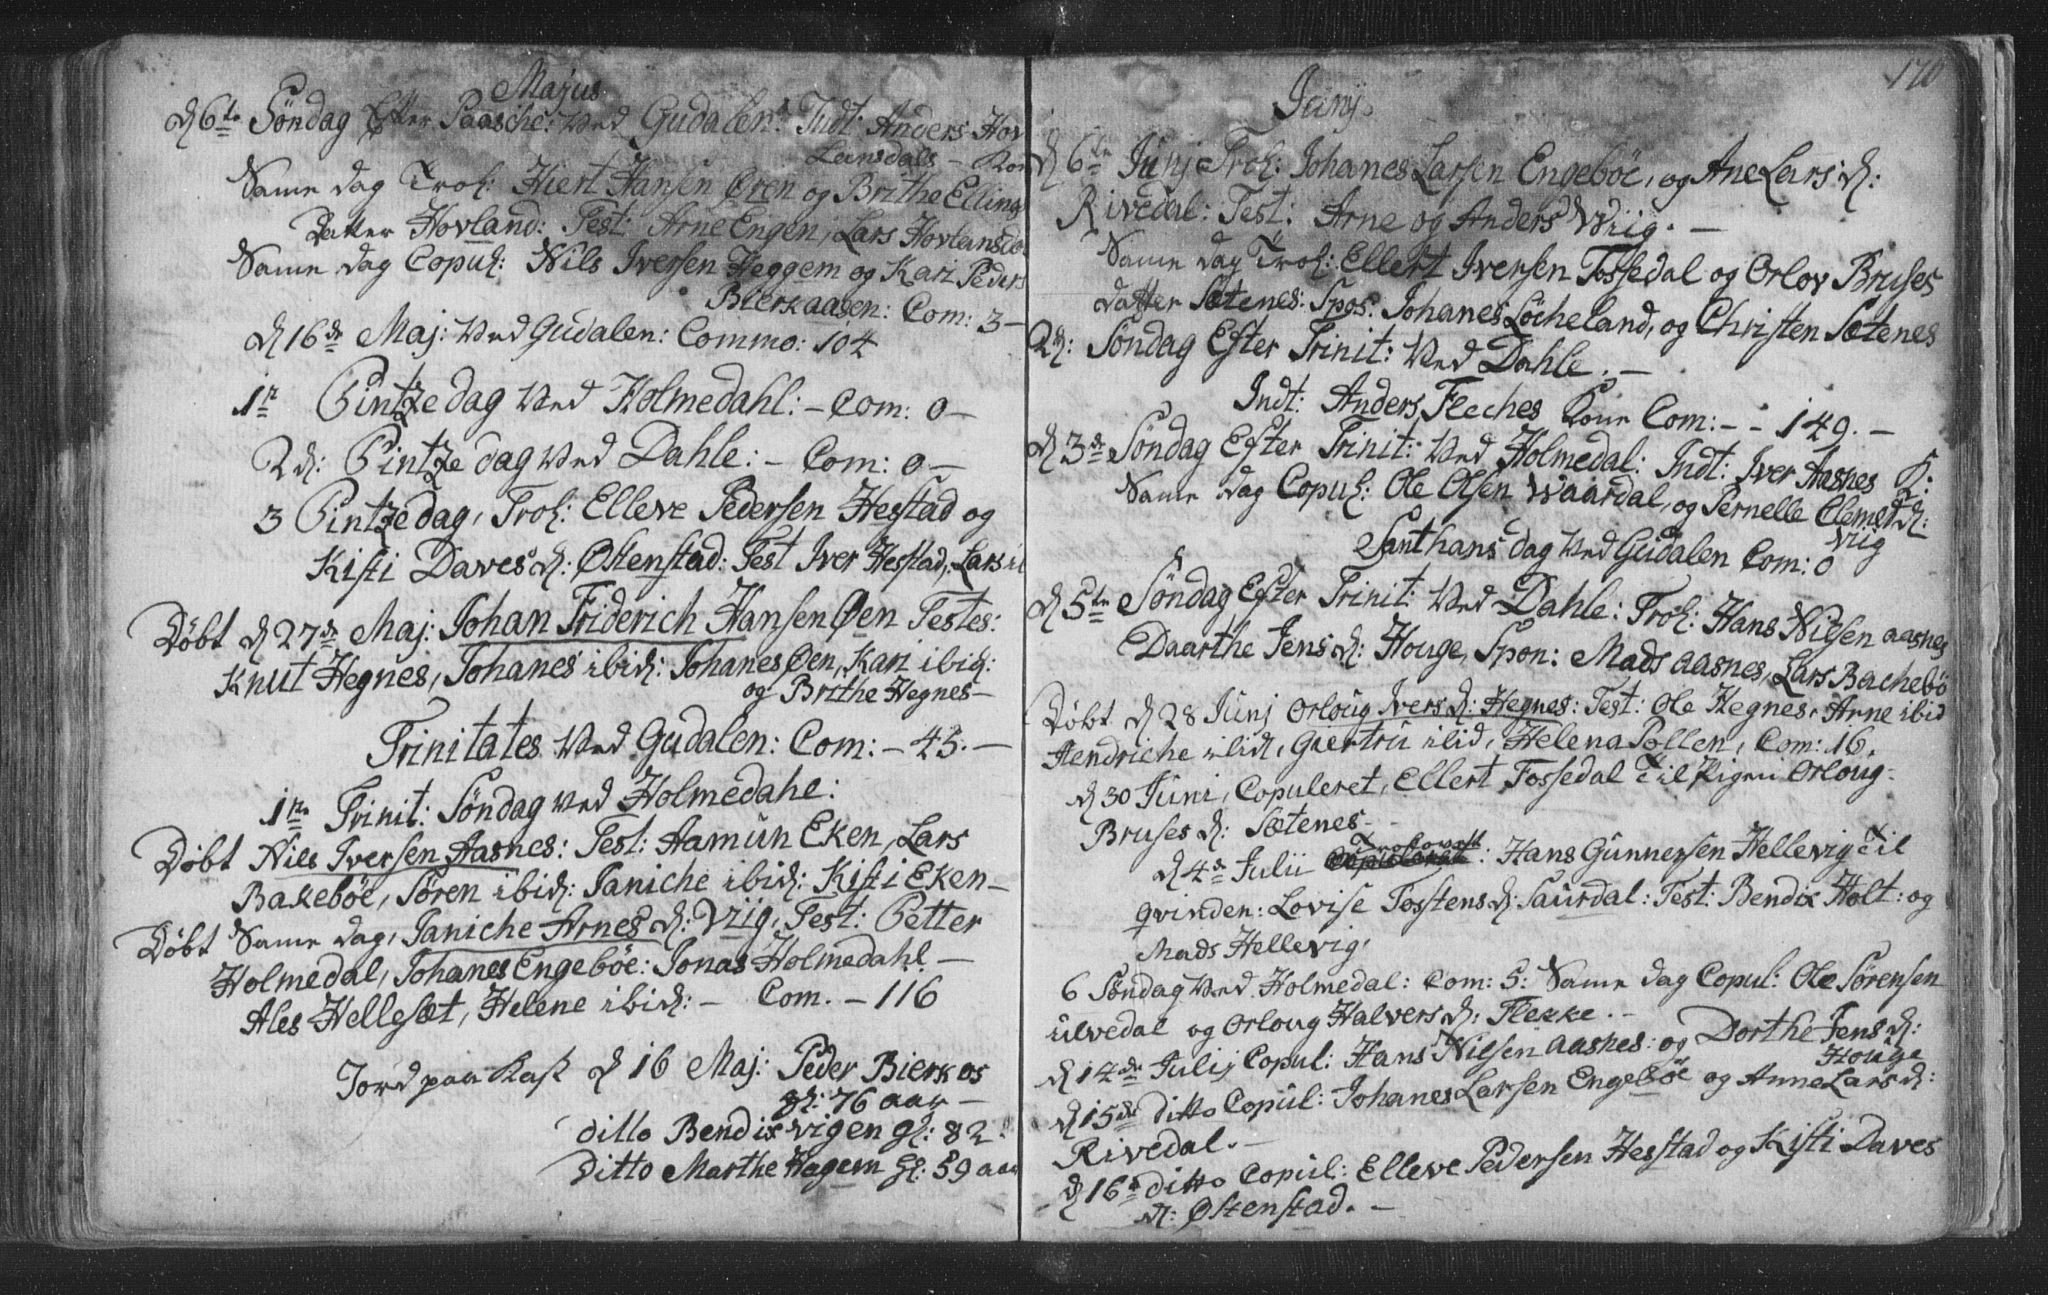 Majus
d 6te Søndag Efter Paasche: Ved Gudalen: Indt: Anders Hov
Lansdals - Kon
Same dag Trol: Hiert Hansen Øren og Brithe Ellings
Datter Hovland: Test: Arne Engen, Lars Hovlansda
Same dag Copul: Nils Iversen Heggem og Kari Peders
Bierkaasen: Com: 3 -
d 16de Maj: Ved Gudalen: Commo: 104
1te Pintze dag Ved Holmedahl: - Com: 0 -
2d: Pintze dag Ved Dahle: - Com: 0 -
3 Pintze dag, Trol: Elleve Pedersen Hestad og
Kisti Daves d: Østenstad: Test Iver Hestad, Lars
Døbt d 27de Maj: Johan Friderich Hansen Øen Testes:
Knut Hegnes, Johanes ibid: Johanes Øen, Kari ibid:
og Brithe Hegnes -
Trinitates Ved Gudalen: Com: - 45. -
1te Trinit: Søndag Ved Holmedahl:
Døbt Nils Iversen Aasnes: Test: Aamun Eken, Lars
Bakebøe, Søren ibid: Janiche ibid: Kisti Eken -
Døbt Same dag, Janiche Arnes d: Viig, Test: Petter
Holmedal, Johanes Engebøe: Jonas Holmedahl -
Ales Hellesæt, Helene ibid: - Com. - 116
Jord paa Kast d 16 Maj: Peder Bierkos
gl: 76 aar -
ditto Bendix Vigen gl: 82:
Ditto Marthe Hagem gl: 59 aar
170
Junij
d 6te Junj Trol: Johanes Larsen Engebøe, og Ane Lars: d:
Rivedal: Test: Arne og Anders Wiig. -
Same dag Trol: Ellert Iversen Fossedal og Orlov Bruses
datter Sætenes: Spos: Johanes Løcheland, og Christen Sætenes
2d: Søndag Efter Trinit: Ved Dahle. -
Indt: Anders Fleches Kone Com: - - 149. -
d 3de Søndag Efter Trinit: Ved Holmedal: Indt: Iver Aasnes K:
Same dag Copul: Ole Olsen Waardal, og Pernelle Clemet d:
Viig
Sant hans dag Ved Gudalen Com: 0
d 5te Søndag Efter Trinit: Ved Dahle: Trol: Hans Nilsen Aasnes
Daarthe Jens d: Houge, Spon: Mads Aasnes, Lars Bachebø
Døbt d 28 Junj Orloug Ivers d: Hegnes: Test: Ole Hegnes, Arne ibid
Hendriche ibid, Giertru ibid, Helena Pollen, Com: 16.
d 30 Juni, Copuleret, Ellert Fossedal Til Pigen Orloug
Bruses d: Sætenes -
d 4de Julii Trolowet: Hans Gunnersen Hellevig Til
Qvinden: Lovise Tostens d: Saurdal: Test: Bendix Holt: og
Mads Hellevig,
6 Søndag Ved Holmedal: Com: 5: Same dag Copul: Ole Sørensen
Ulvedal og Orloug Halvers d: Flekke. -
d 14de Julij Copul: Hans Nilsen Aasnes: og Dorthe Jens d:
Houge
d 15de ditto Copul: Johanes Larsen Engebøe og Anne Lars d:
Rivedal. -
d 16de ditto Copul: Elleve Pedersen Hestad og Kisti Daves
d: Østenstad. -